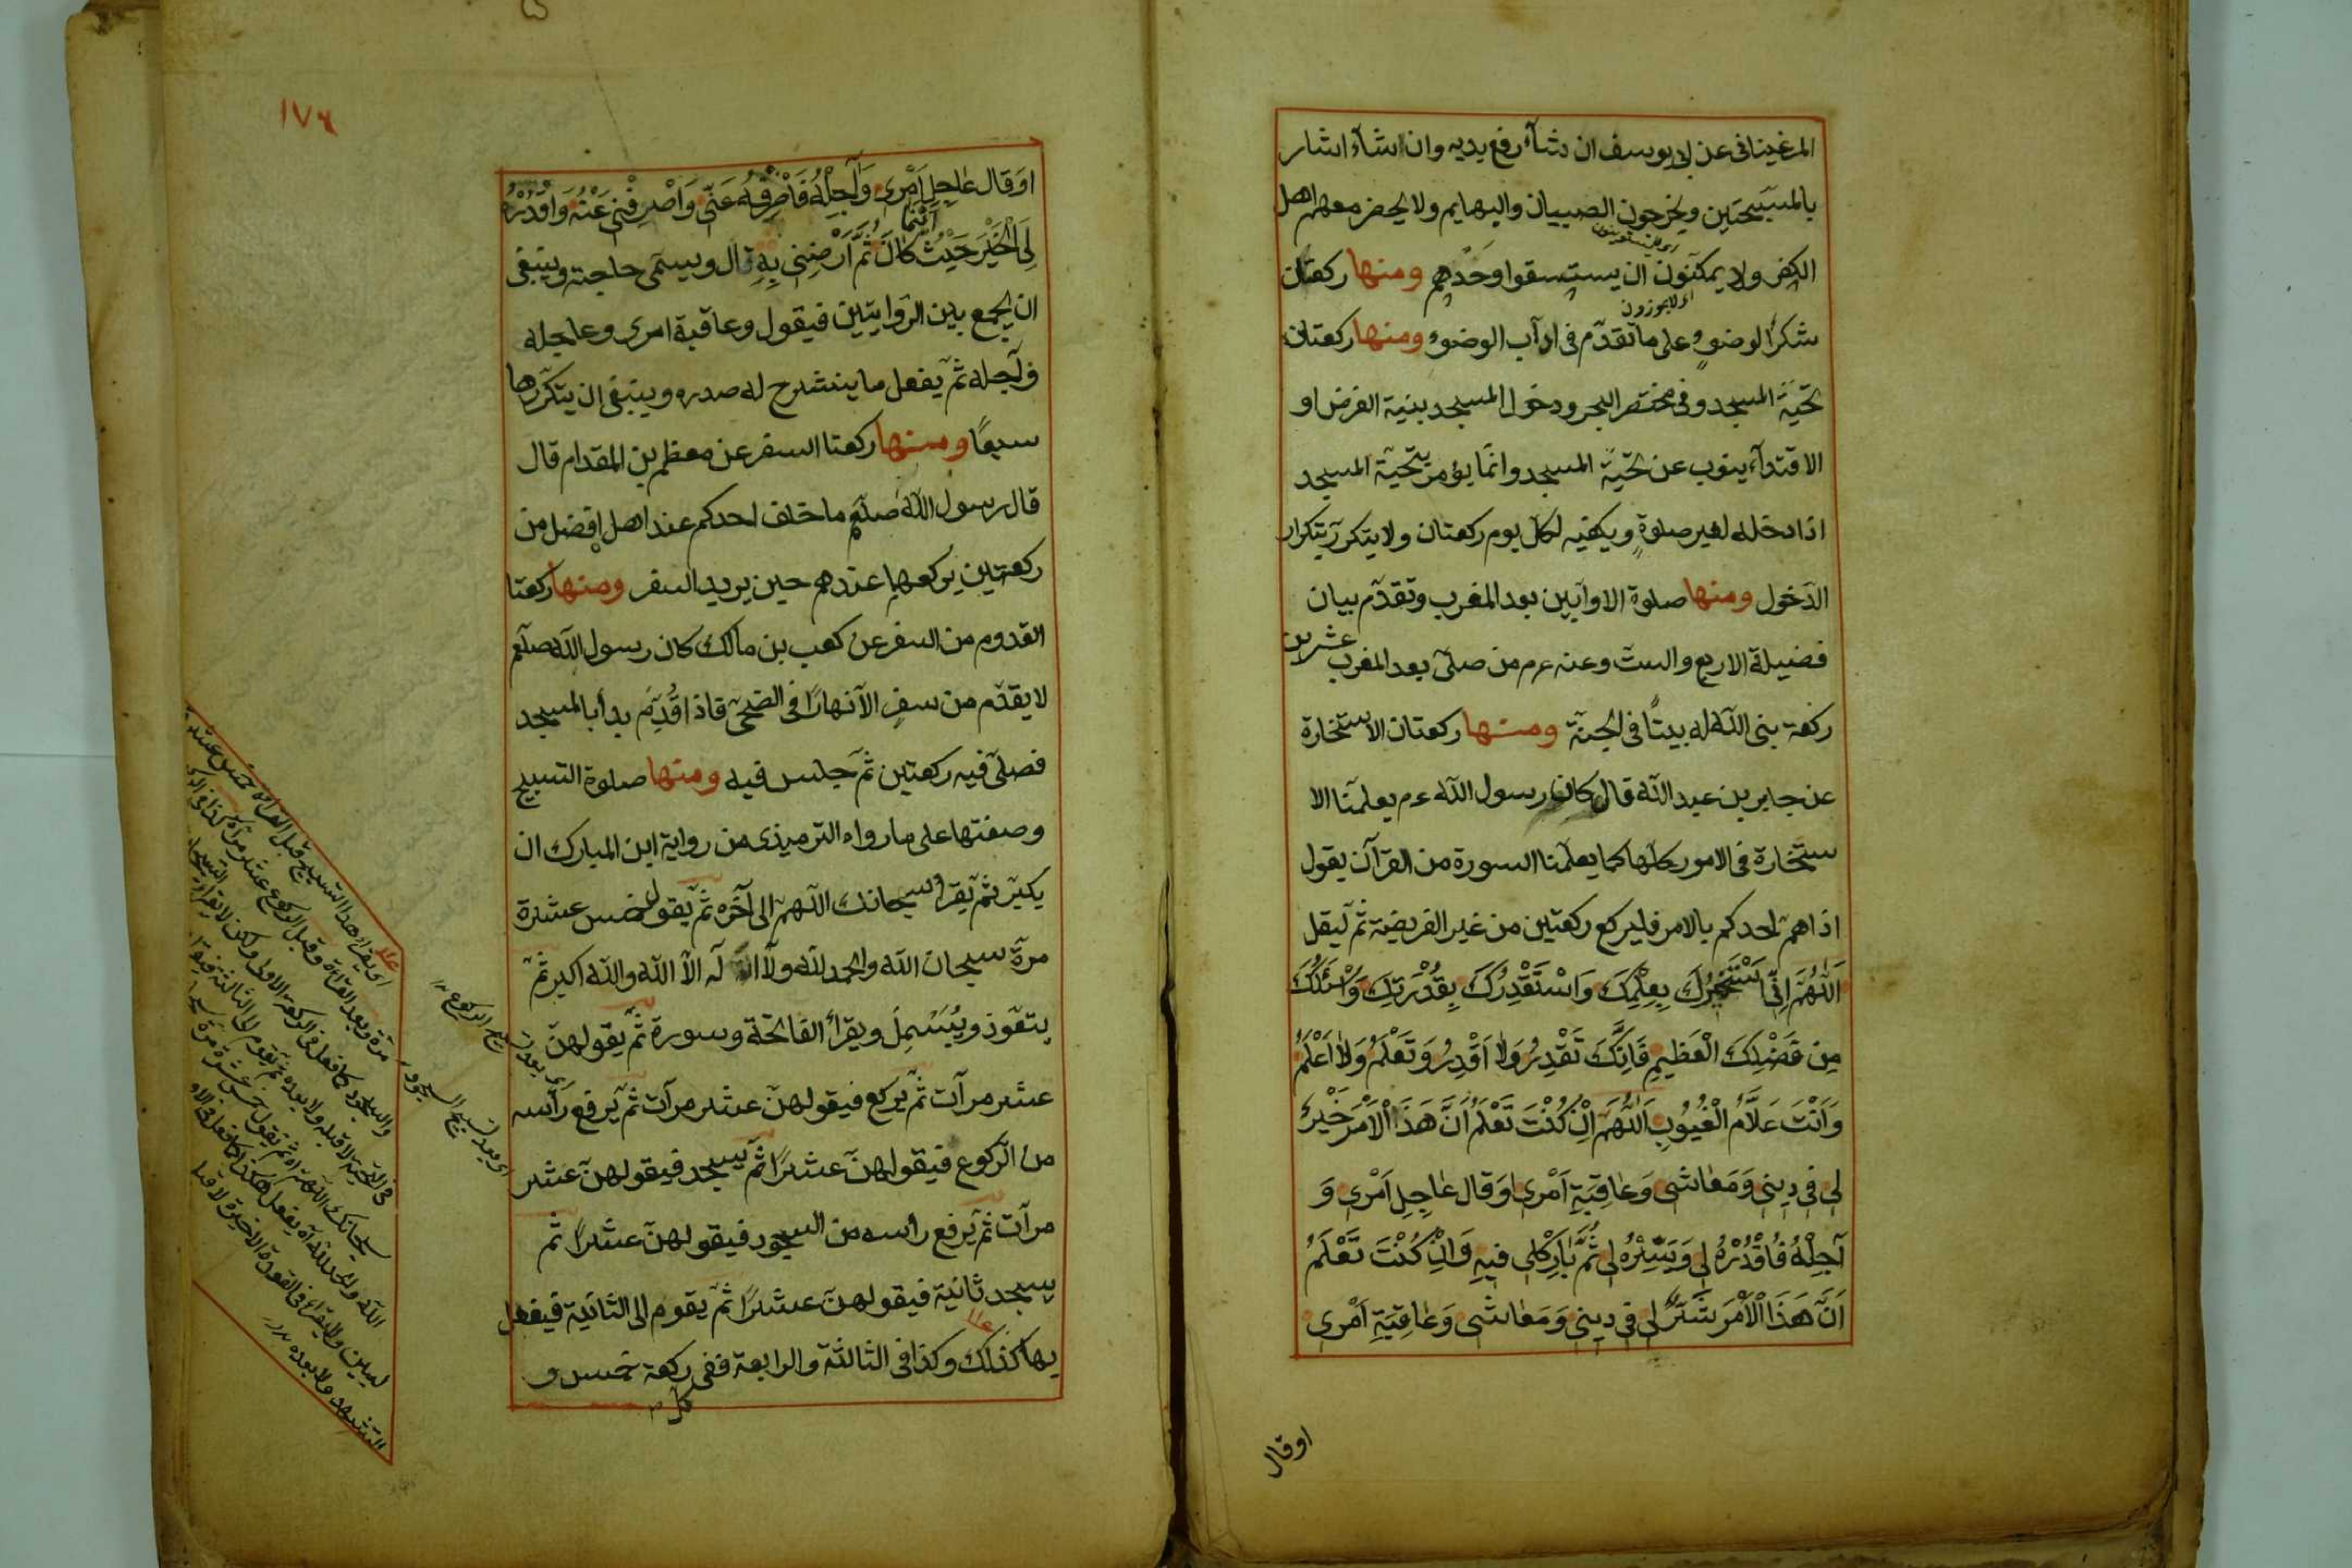 المرغينانى عن ابى يوسف ان شآء رفع يديه وان شآء اشار
بالمسبحتين ويخرجون الصبيان والبهايم ولا يحضر معهم اهل
الكفر ولا يمكنون ان يستسقوا وحدهم ومنها ركعتان
اى لا يجوزون
شكر الوضوء على ما تقدّم فى ادآب الوضوء ومنها ركعتان
تحيّة المسجد وفى مختصر البحر ودخول المسجد بنية الفرض او
الاقتدآء ينوب عن تحيّة المسجد وانّما يؤمر بتحيّة المسجد
اذا دخله لغير صلوة ويكفيه لكل يوم ركعتان ولا يتكرر بتكرار
الدّخول ومنها صلوة الاوابين بعد المغرب وتقدّم بيان
فضيلة الاربع والستّ وعنه عم من صلّى بعد المغرب عشرين
ركعة بنى اللّه له بيتًا فى الجنّة ومنها ركعتان الاستخارة
عن جابر بن عبد اللّه قال كان رسول اللّه عم يعلّمنا الا
ستخارة فى الامور كلّها كما يعلّمنا السورة من القرآن يقول
اذا همّ احدكم بالامر فليركع ركعتين من غير الفريضة ثمّ ليقل
اَللّٰهُمَّ اِنّى اَسْتَخِيرُكَ بِعِلْمِكَ وَاسْتَقْدِرُكَ بِقُدْرَتِكَ وَاَسْئَلُكَ
مِن فَضْلِكَ الْعَظِيمِ فَاِنَّكَ تَقْدِرُ وَلا اَقْدِرُ وَتَعْلَمُ وَلا اَعْلَمُ
وَاَنْتَ عَلَّامُ الْغُيُوبِ اَللّٰهُمَّ اِنْ كُنْتَ تَعْلَمُ اَنَّ هَذَا الْاَمْرَ خَيْرٌ
لِى فِى دِينِى وَمَعَاشِى وَعَاقِبَةِ اَمْرِى اوَقَال عَاجِلِ اَمْرِى وَ
آجِلِهُ فَاقْدُرْهُ لِى وَيَسِّرْهُ لِى ثُمَّ بَارِكْ لِى فِيهِ وَاِنْ كُنْتَ تَعْلَمُ
اَنَّ هَذَا الْاَمْرَ شَرٌّ لِى فِى دِينِى وَمَعَاشِى وَعَاقِبَةِ اَمْرِى
اوقال
١٧٤
اوَقَال عَاجِلِ اَمْرِى وَآجِلِهُ فَاصْرِفْهُ عَنِّى وَاصْرِفْنِى عَنْهُ وَاقْدُرْ
لِىَ الْخَيْرَ حَيْثُ كَانَ ثُمَّ اَرْضِنِى بِهِ قال ويسمّى حاجته وينبغى
ان يجمع بين الرّوايتين فيقول وعاقبة امرى وعاجله
وآجله ثمّ يفعل ما ينشرح له صدره وينبغى ان يتكرّرها
سبعًا ومنها ركعتا السفر عن معظم بن المقدام قال
قال رسول اللّه صلّعم ما خلف احدكم عند اهله افضل من
ركعتين يركعهما عندهم حين يريد السفر ومنها ركعتا
القدوم من السفر عن كعب بن مالك كان رسول اللّه صلّعم
لا يقدّم من سفر الّا نهارًا فى الضحى فاذا قدم بدأ بالمسجد
فصلّى فيه ركعتين ثمّ جلس فيه ومنها صلوة التسبيح
وصفتها على ما رواه الترميذى من رواية ابن المبارك ان
يكبّر ثمّ يقرأ سبحانك اللّهمّ الى آخره ثمّ يقول خمس عشرة
مرّة سبحان اللّه والحمد للّه ولا اله الّا اللّه واللّه اكبر ثمّ
يتعوّذ ويُبَسْمِلُ ويقرأ الفاتحة وسورة ثمّ يقولهنّ
عشر مرآت ثمّ يركع فيقولهنّ عشر مرآت ثمّ يرفع رأسه
من الرّكوع فيقولهنّ عشرًا ثمّ يسجد فيقولهنّ عشر
مرآت ثمّ يرفع رأسه من السجود فيقولهنّ عشرًا ثمّ
يسجد ثانية فيقولهنّ عشرًا ثمّ يقوم الى الثانية فيفعل
بها كذلك وكذا فى الثالثة والرابعة ففى ركعة خمس و
كل
اى بعد تسبيح الركوع
اى بعد تسبيح السجود